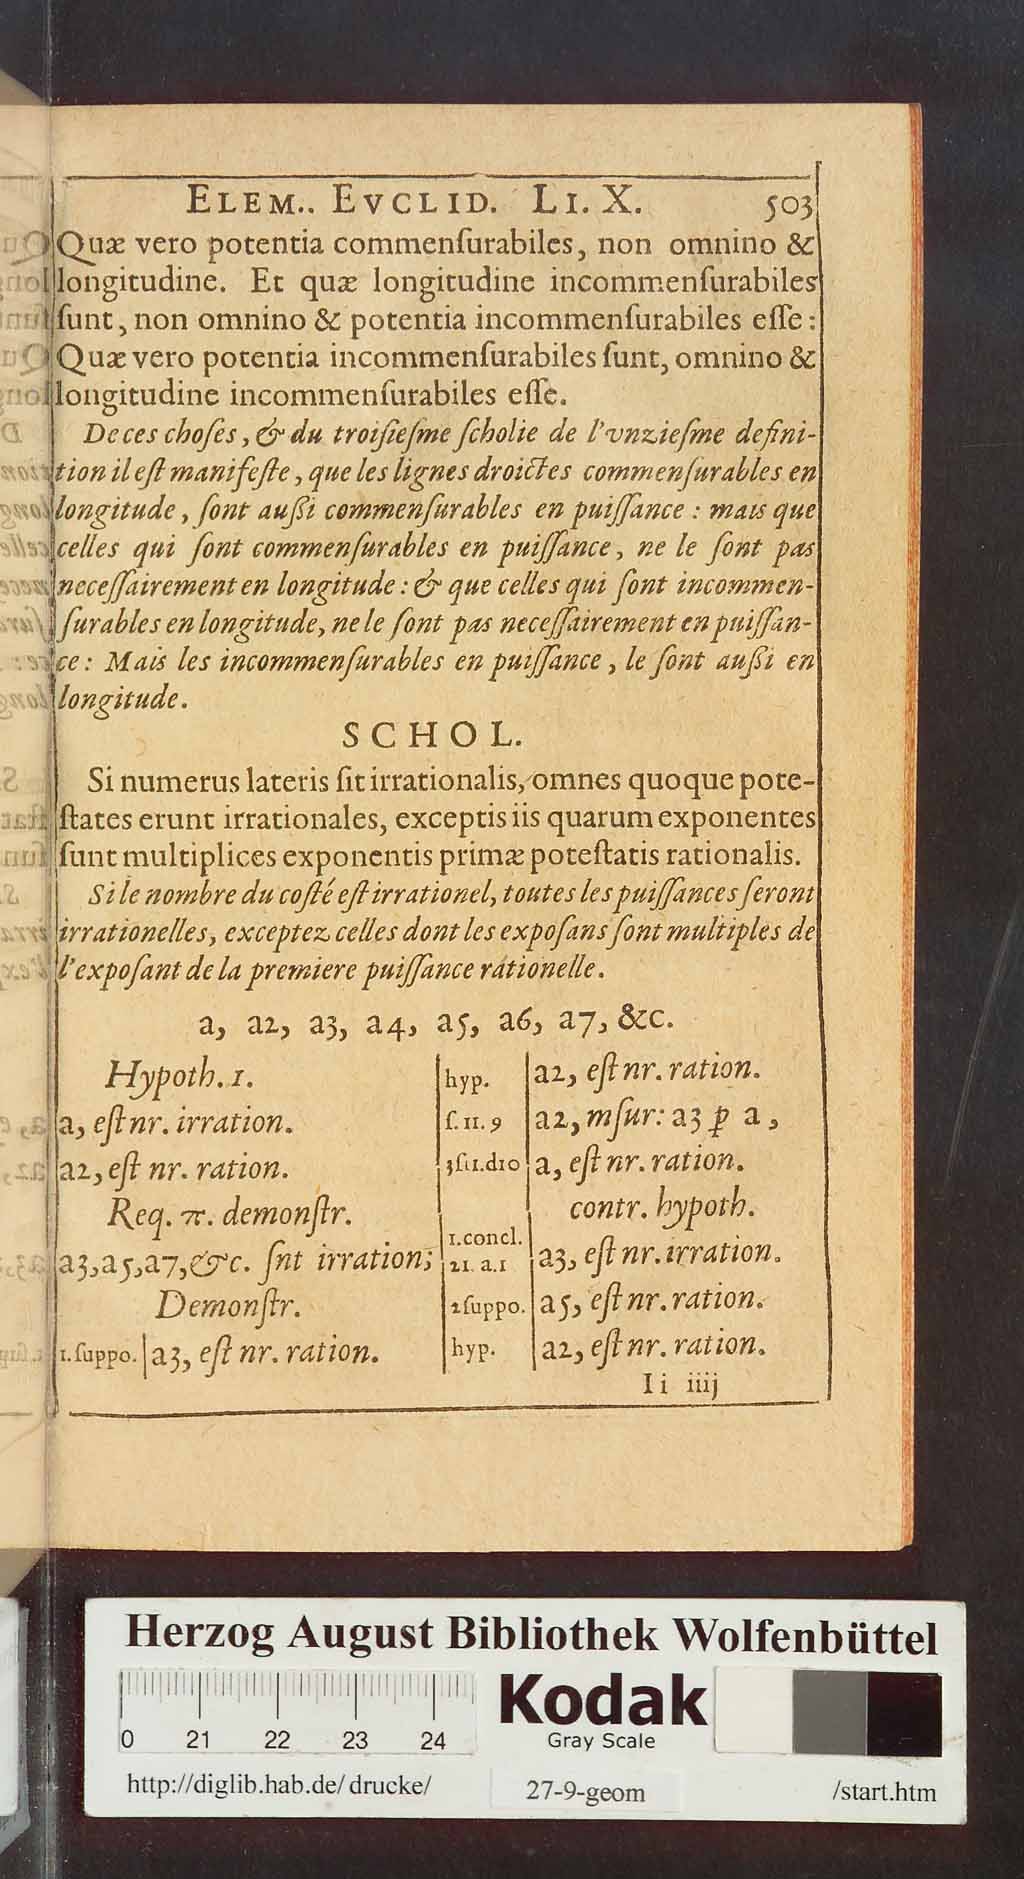 ELEM.. EVCLID. LI. X. 503
Quæ vero potentia commenſurabiles, non omnino &
longitudine. Et quæ longitudine incommenſurabiles
ſunt, non omnino & potentia incommenſurabiles eſſe:
Quæ vero potentia incommenſurabiles ſunt, omnino &
longitudine incommenſurabiles eſſe.
De ces choſes, & du troiſieſme ſcholie de l'vnzieſme defini-
tion il eſt manifeſte, que les lignes droictes commenſurables en
longitude, ſont auſſi commenſurables en puiſſance : mais que
celles qui ſont commenſurables en puiſſance, ne le ſont pas
neceſſairement en longitude : & que celles qui ſont incommen-
ſurables en longitude, ne le ſont pas neceſſairement en puiſſan-
ce : Mais les incommenſurables en puiſſance, le ſont auſſi en
longitude.
SCHOL.
Si numerus lateris ſit irrationalis, omnes quoque pote-
ſtates erunt irrationales, exceptis iis quarum exponentes
ſunt multiplices exponentis primæ poteſtatis rationalis.
Si le nombre du coſté eſt irrationel, toutes les puiſſances ſeront
irrationelles, exceptez celles dont les expoſans ſont multiples de
l'expoſant de la premiere puiſſance rationelle.
a, a2, a3, a4, a5, a6, a7, &c.
Hypoth. 1.
a, eſt nr. irration.
a2, eſt nr. ration.
Req. π. demonſtr.
a3, a5, a7, &c. ſnt irration;
Demonſtr.
1. ſuppo. a3, eſt nr. ration.
hyp. a2, eſt nr. ration.
ſ. 11. 9 a2, mſur: a3 ꝑ a,
3ſ11.d10 a, eſt nr. ration.
contr. hypoth.
1.concl.
21. a.1 a3, eſt nr. irration.
2ſuppo. a5, eſt nr. ration.
hyp. a2, eſt nr. ration.
Ii iiij
Herzog August Bibliothek Wolfenbüttel
0 21 22 23 24
Kodak
Gray Scale
http://diglib.hab.de/drucke/ 27-9-geom /start.htm